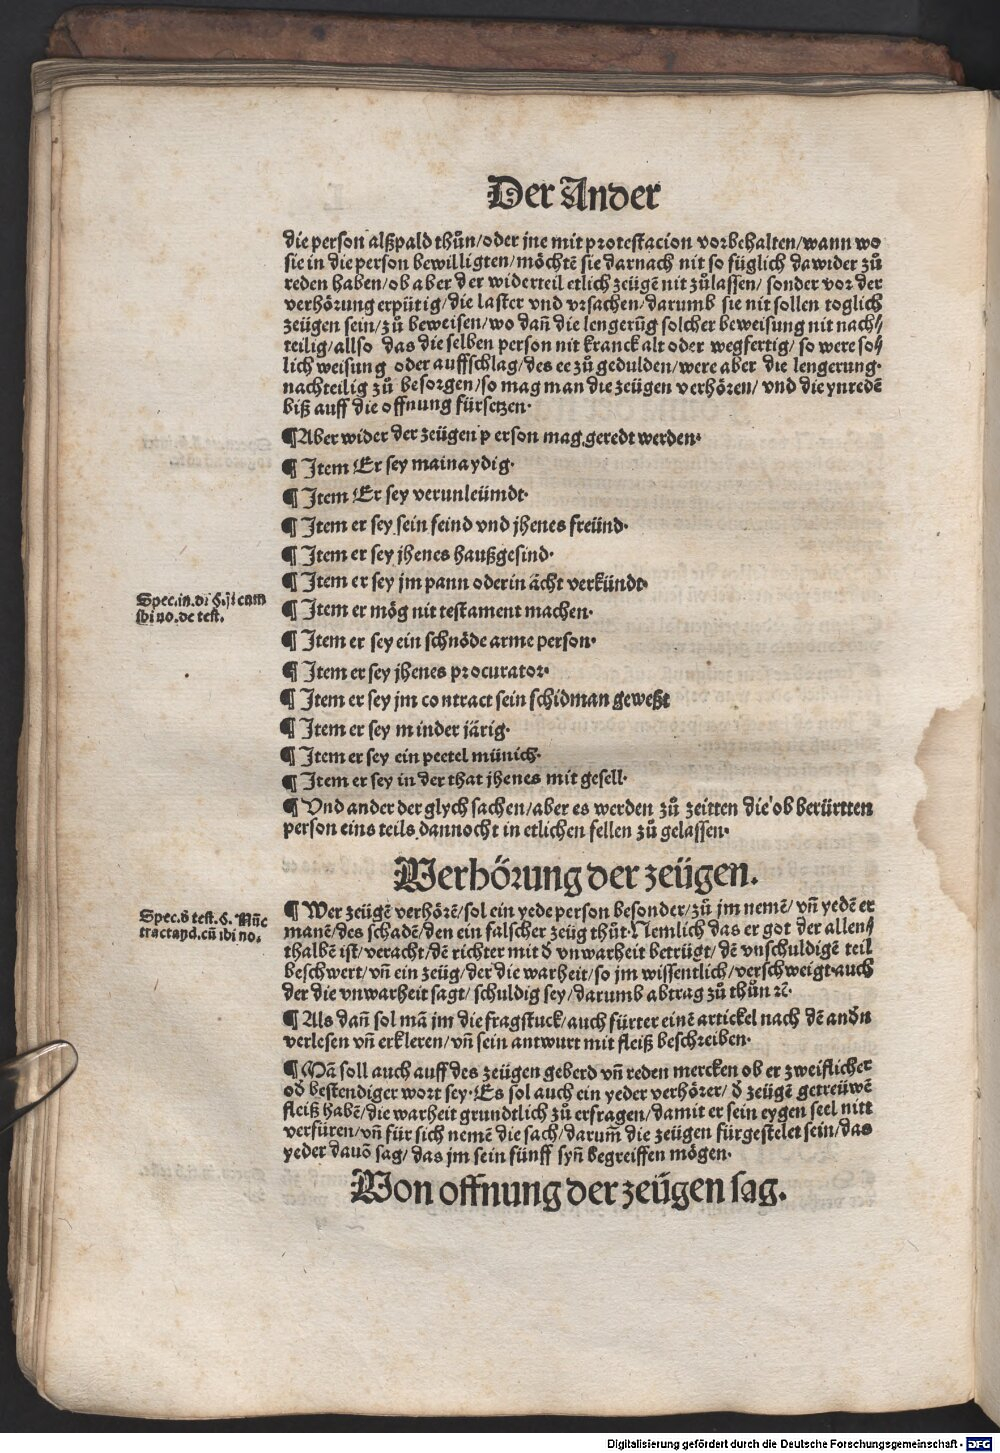 Der Ander
die person alßpald thůn/oder jne mit protestacion vorbehalten/wann wo
sie in die person bewilligten/möchtē sie darnach nit so füglich dawider zů
reden haben/ob aber der widerteil etlich zeügē nit zůlassen/ sonder vor der
verhörung erpütig/die laster vnd vrsachen/darumb sie nit sollen toglich
zeügen sein/zů beweisen/wo dañ die lengerūg solcher beweisung nit nach⸗
teilig/allso das die selben person nit kranck alt oder wegfertig/ so were so⸗
lich weisung oder auffschlag/des ee zů gedulden/were aber die lengerung·
nachteilig zů besorgen/so mag man die zeügen verhören/ vnd die ynredē
biß auff die offnung fürsetzen·
¶Aber wider der zeügen p erson mag geredt werden·
¶ Item Er sey mainaydig·
¶ Item Er sey verunleümdt·
¶ Item er sey sein feind vnd jhenes freünd·
¶ Item er sey jhenes haußgesind·
¶ Item er sey jm pann oder in ächt verkündt·
Spec.in.di §.ji cum
ibi no.de test.
¶ Item er mög nit testament machen·
¶ Item er sey ein schnöde arme person·
¶ Item er sey jhenes procurator·
¶ Item er sey jm contract sein schidman geweßt
¶ Item er sey minder järig·
¶ Item er sey ein peetel münich·
¶ Item er sey in der that jhenes mit gesell·
¶ Vnd ander der glych sachen/aber es werden zů zeitten die ob berürtten
person eins teils dannocht in etlichen fellen zů gelassen·
Verhörung der zeügen.
Spec.δ test.§. Nūc
tractand.cū ibi no.
¶ Wer zeügē verhörē/sol ein yede person besonder/zů jm nemē/ vñ yedē er
manē/des schadē/den ein falscher zeüg thůt·Nemlich das er got der allen⸗
thalbē ist/veracht/dē richter mit đ vnwarheit betrügt/dē vnschuldigē teil
beschwert/vñ ein zeüg/der die warheit/so jm wissentlich/verschweigt·auch
der die vnwarheit sagt/ schuldig sey/darumb abtrag zů thůn ꝛc̄·
¶ Als dañ sol mā jm die fragstuck/auch fürter einē artickel nach dē andn̄
verlesen vñ erkleren/vñ sein antwurt mit fleiß beschreiben·
¶Mā soll auch auff des zeügen geberd vñ reden mercken ob er zweiflicher
ođ bestendiger wort sey·Es sol auch ein yeder verhörer/ đ zeügē getreüwē
fleiß habē/die warheit grundtlich zů erfragen/damit er sein eygen seel nitt
verfüren/vñ für sich nemē die sach/darum̄ die zeügen fürgestelet sein/das
yeder dauō sag/das jm sein fünff syñ begreiffen mögen·
Von offnung der zeügen sag.
Digitalisierung gefördert durch die Deutsche Forschungsgemeinschaft - DFG